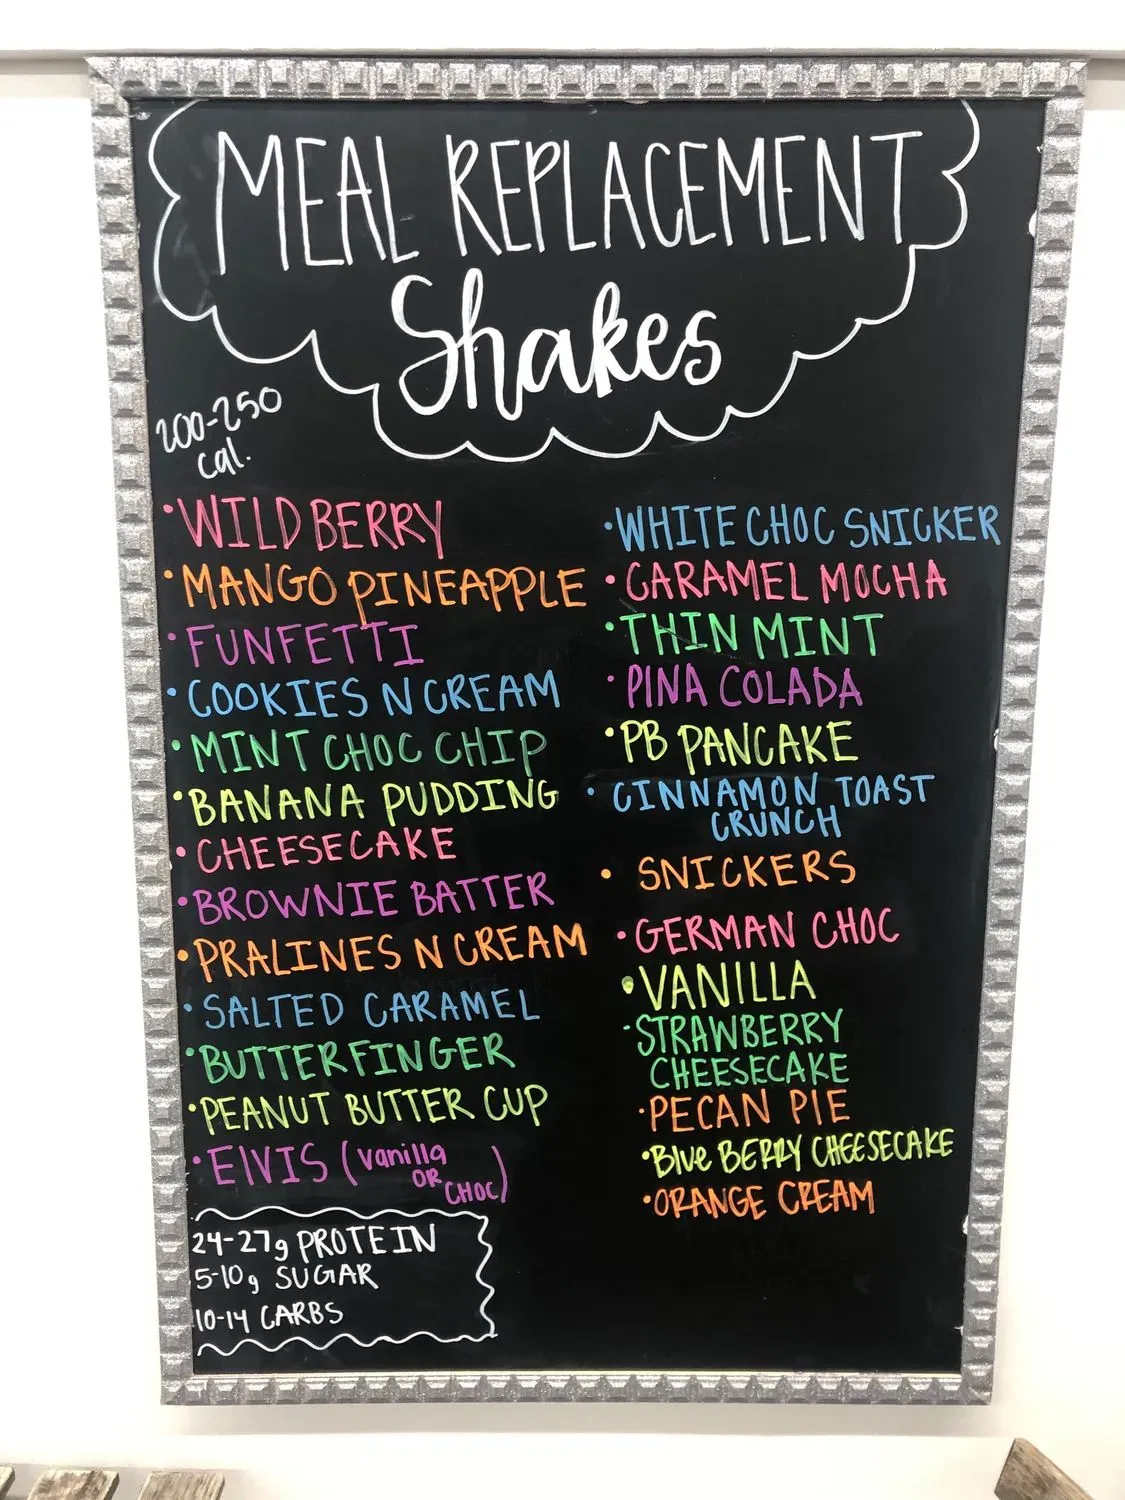 MEAL REPLACEMENT
Shakes
200-250
cal.
•WILD BERRY
•MANGO PINEAPPLE
•FUNFETTI
•COOKIES N CREAM
•MINT CHOC CHIP
•BANANA PUDDING
•CHEESECAKE
•BROWNIE BATTER
•PRALINES N CREAM
•SALTED CARAMEL
•BUTTERFINGER
•PEANUT BUTTER CUP
•ElVIS (vanilla
OR
CHOC)
24-27g PROTEIN
5-10g SUGAR
10-14 CARBS
•WHITE CHOC SNICKER
•CARAMEL MOCHA
•THIN MINT
•PINA COLADA
•PB PANCAKE
•CINNAMON TOAST
CRUNCH
•SNICKERS
•GERMAN CHOC
•VANILLA
•STRAWBERRY
CHEESECAKE
•PECAN PIE
•Blue BERRY CHEESECAKE
•ORANGE CREAM